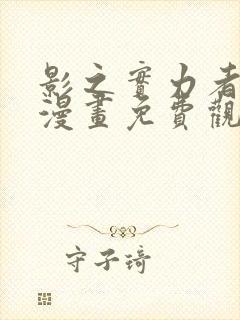 影之實力者
漫畫免費觀
守子琦